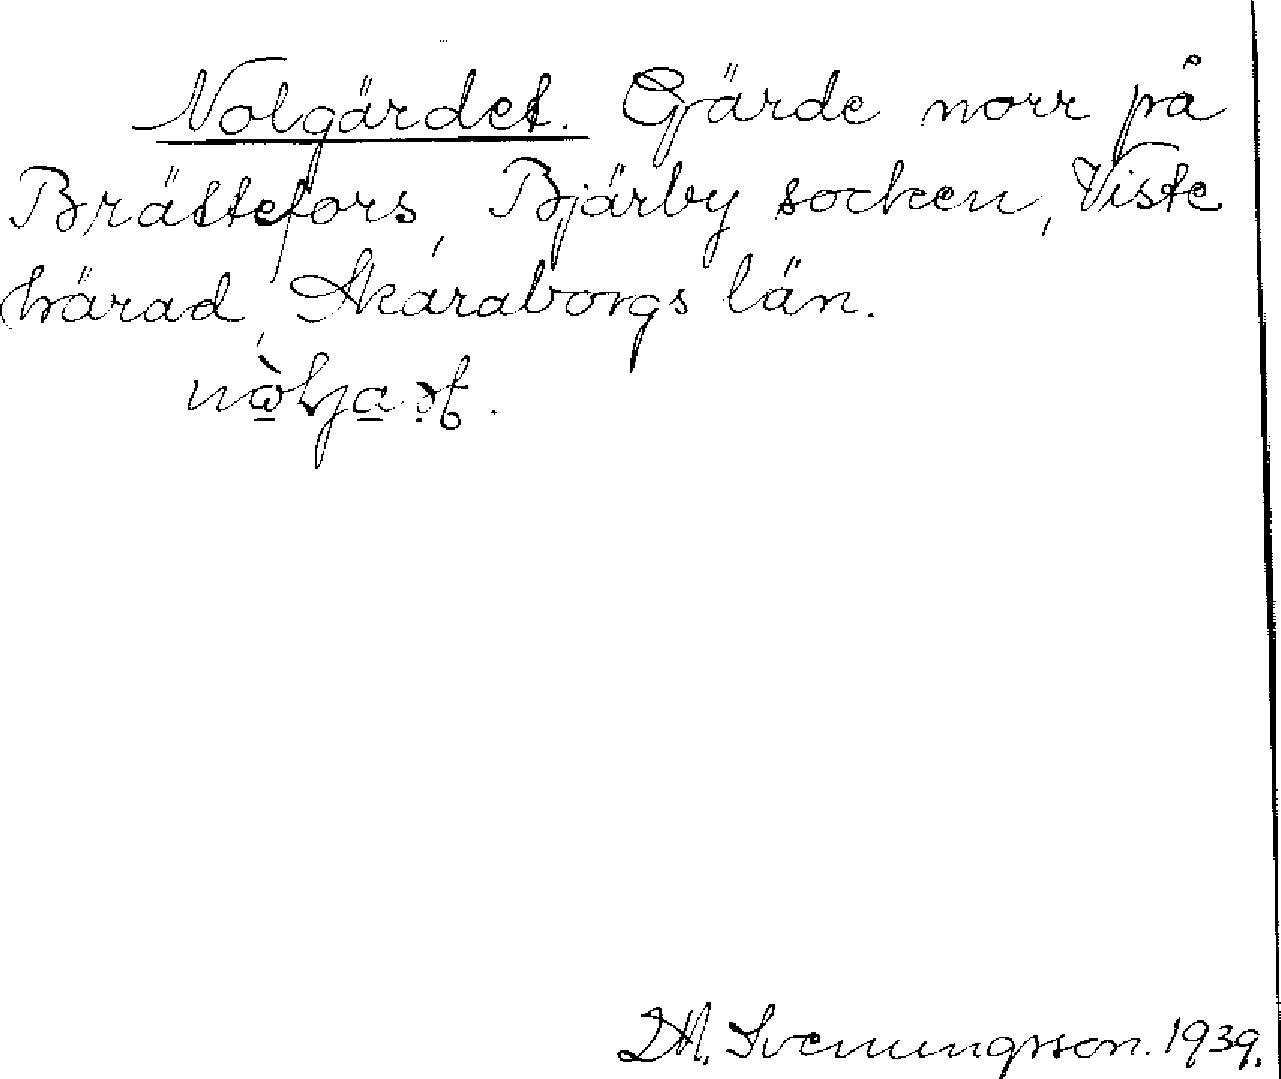 Nolgärdet. Gärde norr på
Brättefors, Bjärby socken, Viste
härad, Skaraborgs län.
Svenungsson. 1939.